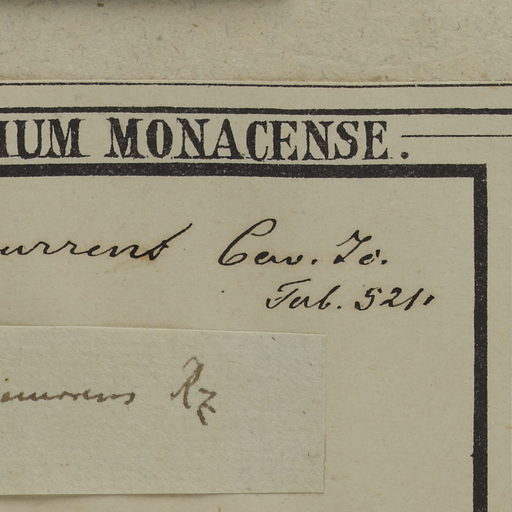 IUM MONACENSE.
urrens Cav. Ic.
Tab. 521.
currens Rz